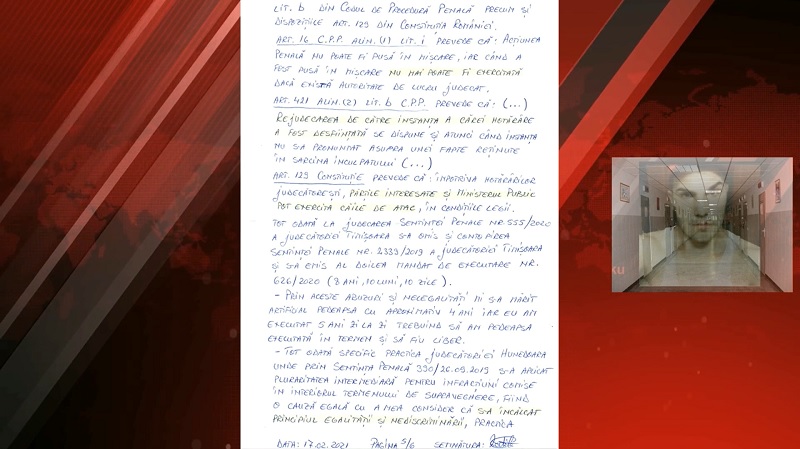 LIT. b DIN CODUL DE PROCEDURĂ PENALĂ PRECUM ȘI
DISPOZIȚIILE ART. 129 DIN CONSTITUȚIA ROMÂNIEI.
ART. 16 C.P.P. ALIN.(1) LIT. i PREVEDE CĂ: ACȚIUNEA
PENALĂ NU POATE FI PUSĂ ÎN MIȘCARE, IAR CÂND A
FOST PUSĂ ÎN MIȘCARE NU MAI POATE FI EXERCITATĂ
DACĂ EXISTĂ AUTORITATE DE LUCRU JUDECAT.
ART. 421 ALIN.(2) LIT. b C.P.P. PREVEDE CĂ: (...)
REJUDECAREA DE CĂTRE INSTANȚA A CĂREI HOTĂRÂRE
A FOST DESFIINȚATĂ SE DISPUNE ȘI ATUNCI CÂND INSTANȚA
NU S-A PRONUNȚAT ASUPRA UNEI FAPTE REȚINUTE
ÎN SARCINA INCULPATULUI (...)
ART. 129 CONSTITUȚIE PREVEDE CĂ: ÎMPOTRIVA HOTĂRÂRILOR
JUDECĂTOREȘTI, PĂRȚILE INTERESATE ȘI MINISTERUL PUBLIC
POT EXERCITA CĂILE DE ATAC, ÎN CONDIȚIILE LEGII.
TOT ODATĂ LA JUDECAREA SENTINȚEI PENALE NR. 555/2020
A JUDECĂTORIEI TIMIȘOARA S-A OMIS ȘI CONTOPIREA
SENTINȚEI PENALE NR. 2339/2019 A JUDECĂTORIEI TIMIȘOARA
ȘI S-A EMIS AL DOILEA MANDAT DE EXECUTARE NR.
626/2020 (8 ANI, 10 LUNI, 10 ZILE).
- PRIN ACESTE ABUZURI ȘI NELEGALITĂȚI MI S-A MĂRIT
ARTIFICIAL PEDEAPSA CU APROXIMATIV 4 ANI IAR EU AM
EXECUTAT 5 ANI ZI LA ZI TREBUIND SĂ AM PEDEAPSA
EXECUTATĂ ÎN TERMEN ȘI SĂ FIU LIBER.
- TOT ODATĂ SPECIFIC PRACTICA JUDECĂTORIEI HUNEDOARA
UNDE PRIN SENTINȚA PENALĂ 330/26.09.2019 S-A APLICAT
PLURARITATEA INTERMEDIARĂ PENTRU INFRACȚIUNI COMISE
ÎN INTERIORUL TERMENULUI DE SUPRAVEGHERE, FIIND
O CAUZĂ EGALĂ CU A MEA CONSIDER CĂ S-A ÎNCĂLCAT
PRINCIPIUL EGALITĂȚII ȘI NEDISCRIMINĂRII, PRACTICA
DATA: 17.02.2021 PAGINA 5/6 SEMNĂTURA: